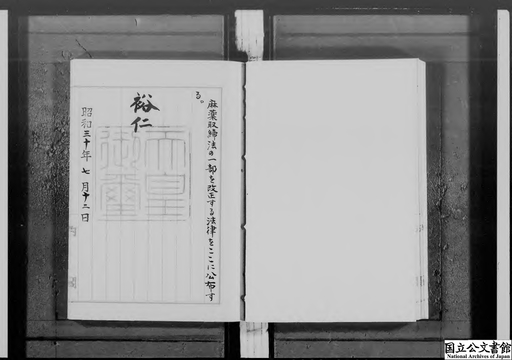 麻薬取締法の一部を改正する法律をここに公布す
る。
裕仁
天皇
御璽
昭和三十年 七月十二日
国立公文書館
National Archives of Japan